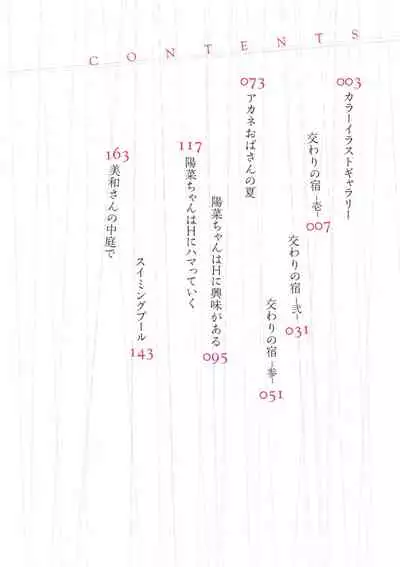 CONTENTS
003
カラーイラストギャラリー
交わりの宿 ─壱─
007
交わりの宿 ─弐─
031
交わりの宿 ─参─
051
073
アカネおばさんの夏
陽菜ちゃんはHに興味がある
095
117
陽菜ちゃんはHにハマっていく
スイミングプール
143
163
美和さんの中庭で